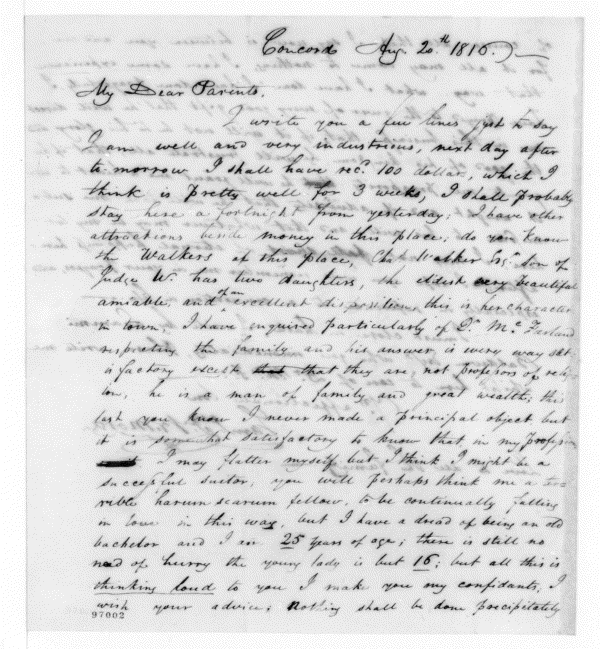 Concord Aug. 20.th 1816.
My Dear Parents.
I write you a few lines just to say
I am well and very industrious, next day after
to-morrow I shall have rec.d 100 dollars, which I
think is pretty well for 3 weeks, I shall probably
stay here a fortnight from yesterday; I have other
attractions beside money in this place; do you know
the Walkers of this place, Cha.s Walker Esq.r son of
Judge W. has two daughters, the eldest very beautiful
amiable, and of an excellent disposition; this is her character
in town, I have enquired particularly of D.r Mc. Farland
respecting the family and his answer is every way sat-
isfactory except that they are not professors of relig-
ion, he is a man of family and great wealth; this
last you know I never made a principal object but
it is somewhat satisfactory to know that in my profession
I may flatter myself but I think I might be a
successful suitor, you will perhaps think me a ter-
rible harum scarum fellow, to be continually falling
in love in this way, but I have a dread of being an old
bachelor and I am 25 years of age; there is still no
need of hurry the young lady is but 16; but all this is
thinking loud to you I make you my confidants, I
wish your advice; nothing shall be done precipitately
97002